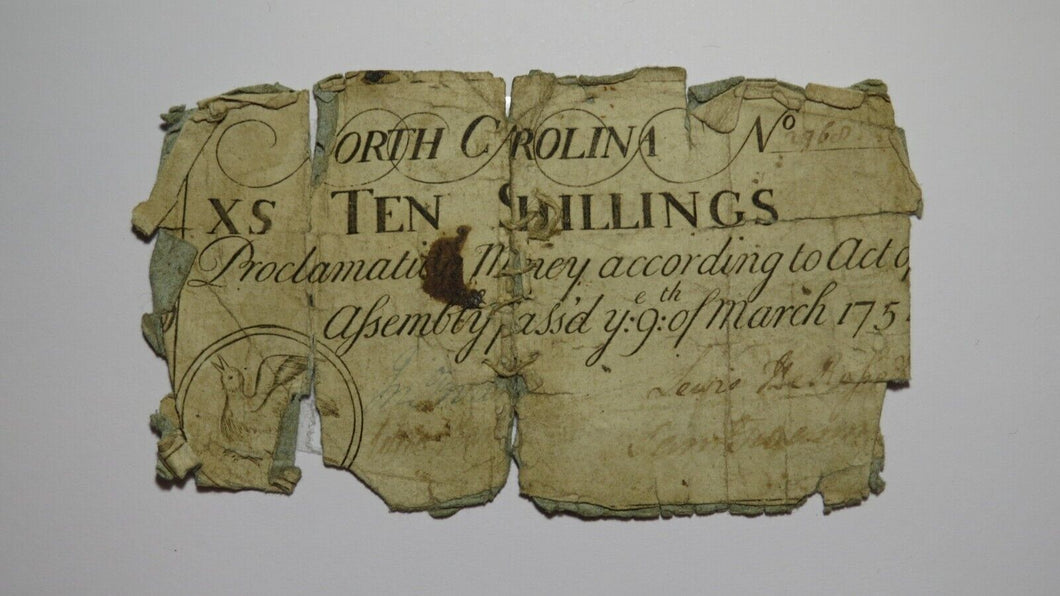 NORTH CAROLINA No 2960
XS TEN SHILLINGS
Proclamation Money according to Act of
Aſsembly paſs'd ye: 9th: of March 175
Lewis